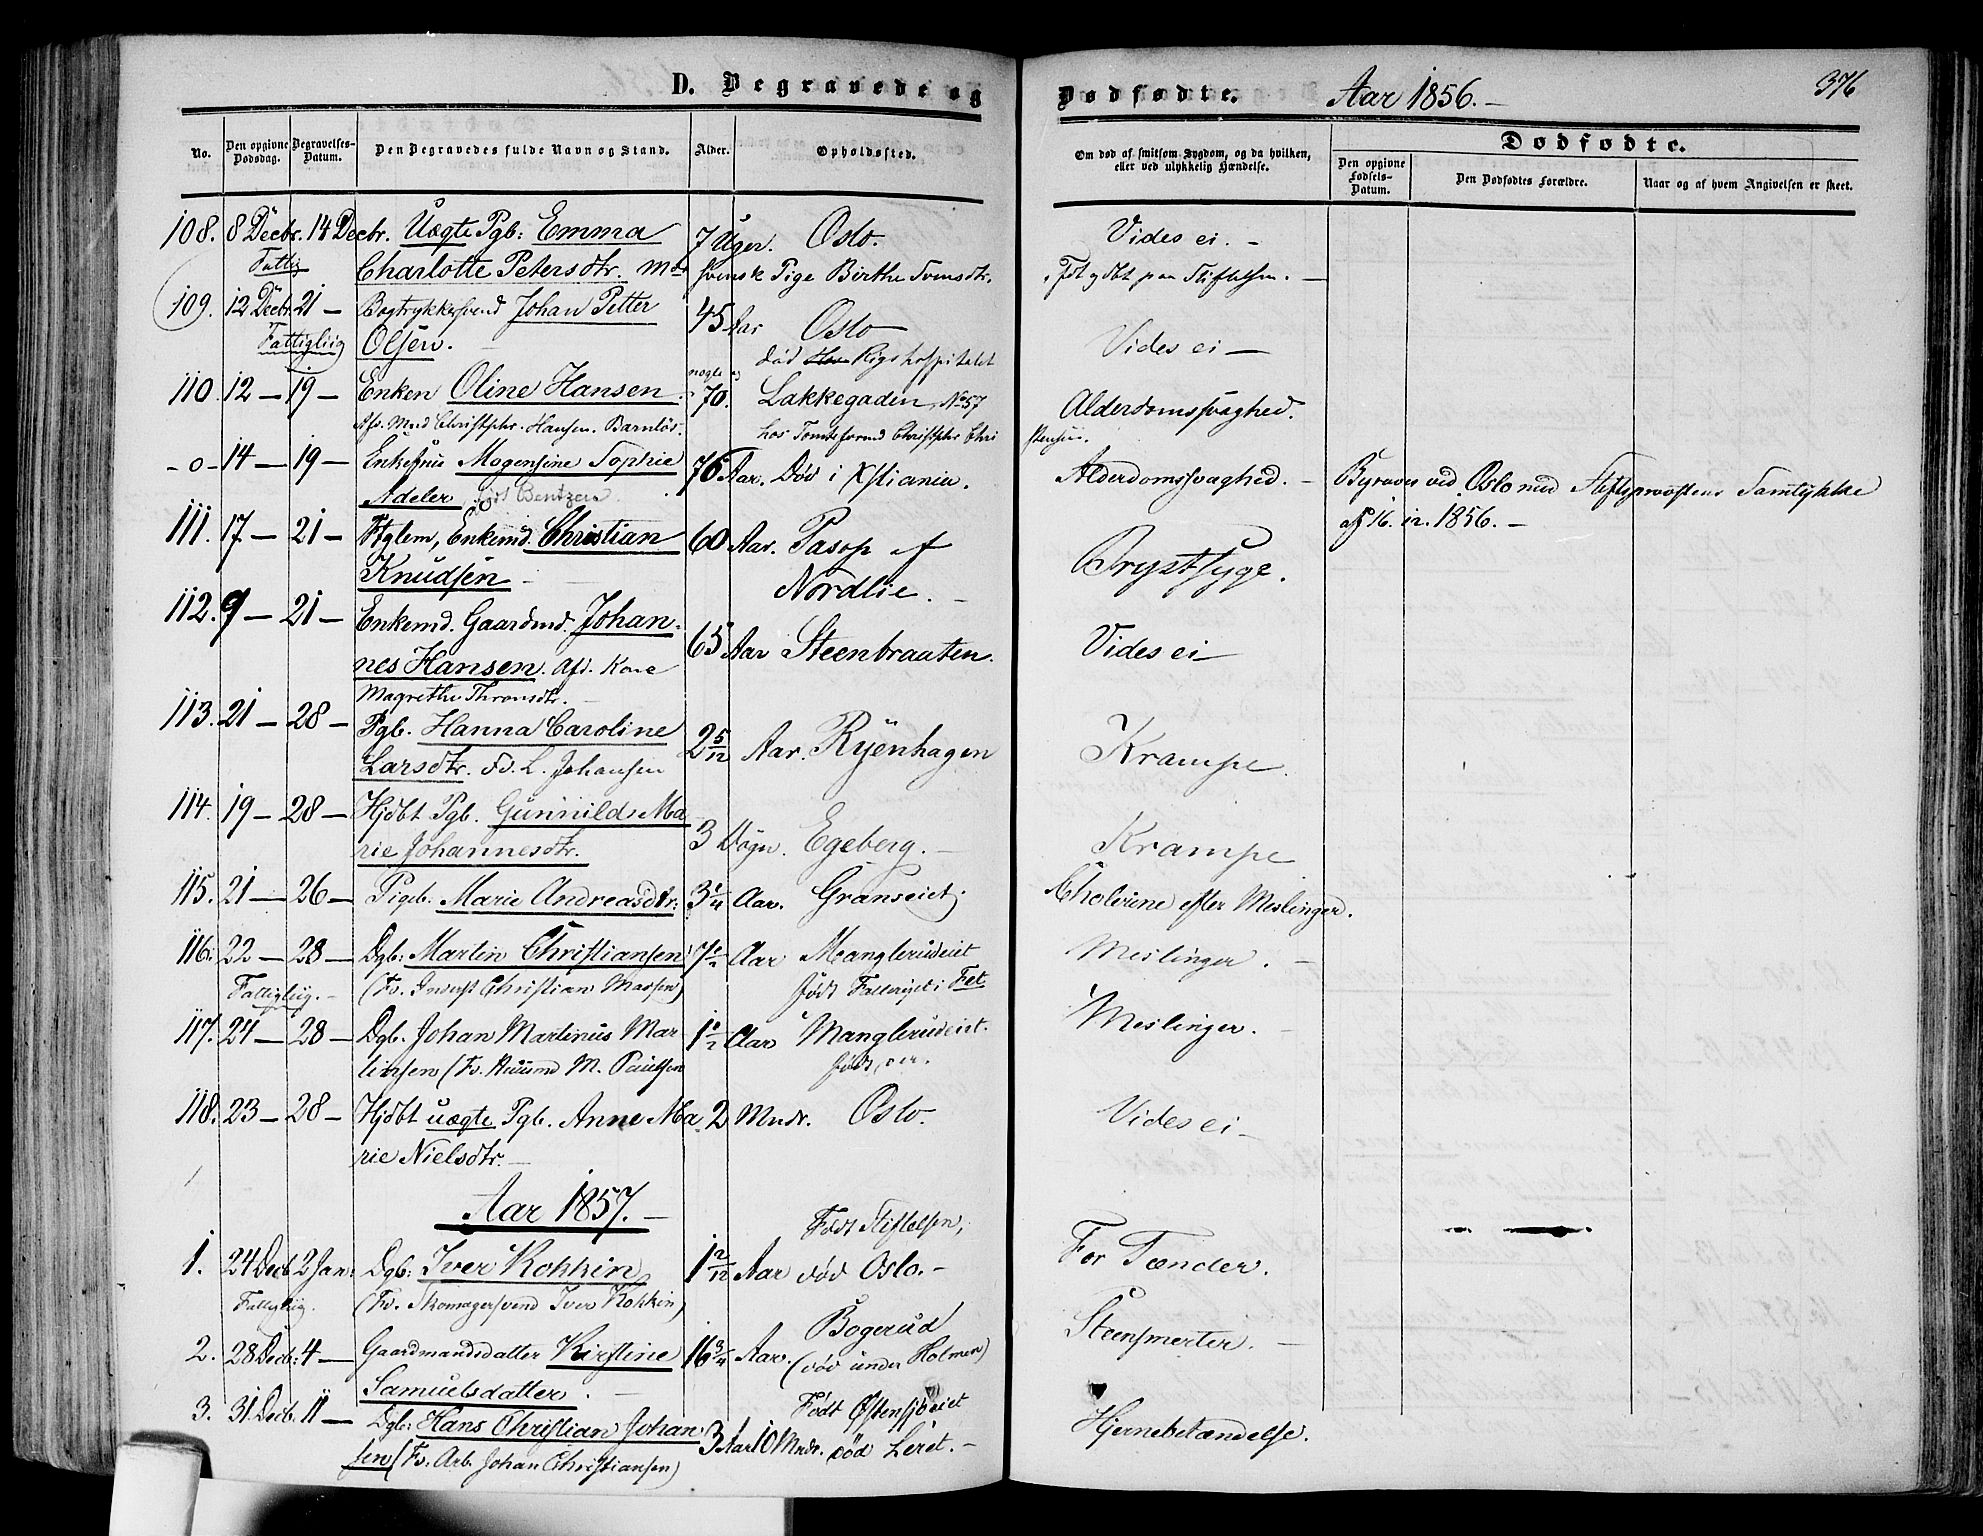 D. Begravede og Dødfødte. Aar 1856. 376
No. Den opgivne Dødsdag. Begravelses-Datum. Den Begravedes fulde Navn og Stand. Alder. Opholdssted. Om død af smitsom Sygdom, og da hvilken, eller ved ulykkelig Hændelse. Dødfødte.
Den opgivne Fødsels-Datum. Den Dødfødtes Forældre. Naar og af hvem Angivelsen er skeet.
108. 8 Decbr. 14 Decbr. Uægte Pgb: Emma 7 Uger. Oslo. Vides ei. -
Fattig Charlotte Petersdtr. Mdr svensk Pige Birthe Svensdtr. Fdt og dbt paa Stiftelsen. -
109. 12 Decbr. 21 - Bogtrykkersvend Johan Petter 45 Aar Oslo Vides ei -
Fattigliig Olsen. - død Rigshospitalet
110. 12 - 19 - Enken Oline Hansen nogle og 70. Lakkegaden, No 57 Alderdomssvaghed.
Afd. Mand Christopher Hansen. Barnløs. hos Tomteformd Christopher Christensen.
- o - 14 - 19 - Enkefrue Mogensine Sophie 76 Aar. Død i Xstiania. Alderdomssvaghed. - Begraves ved Oslo med Stiftsprovstens Samtykke
Adeler født Bentzen. af 16. 12. 1856. -
111. 17 - 21 - Ftglem, Enkemd. Christian 60 Aar. Pasop af Brystsyge.
Knudsen - Nordlie. -
112. 9 - 21 - Enkemd. Gaardmd. Johan- 65 Aar Steenbraaten. Vides ei -
nes Hansen. Afd. Kone
Magrethe Thronsdtr. -
113. 21 - 28 - Pgb. Hanna Caroline 2 5/12 Aar. Ryenhagen Krampe.
Larsdtr. Fd. L. Johansen
114. 19 - 28 - Hjdbt Pgb. Gunnild Ma- 3 Døgn. Egeberg. - Krampe
rie Johannesdtr.
115. 21 - 26 - Pigeb. Marie Andreasdtr: 3 1/4 Aar. Granseiet Cholerine efter Meslinger.
116. 22 - 28 - Dgb: Martin Christiansen 7 1/2 Aar Manglerudeiet Meslinger. -
Fattigliig. - (Fd. Inderst Christian Madsen) født i Fet
117. 24 - 28 - Dgb. Johan Martinus Mar- 1 1/2 Aar Manglerudeiet. Meslinger. -
tinsen (Fd. Huusmd M. Paulsen født der.
118. 23 - 28 - Hjdbt uægte Pgb. Anne Ma- 2 Mndr. Oslo. Vides ei -
rie Nielsdtr. -
Aar 1857. -
1. 24 Decb 2 Jan: Dgb: Iver Kokkin 1 2/12 Aar Født Stiftelsen, død Oslo. - For Tænder.
Fattigliig. (Fd. Skomagersvend Iver Kokkin)
2. 28 Decb: 4 - Gaardmandsdatter Kirstine 16 3/4 Aar. Bogerud (død under Holmen) Steensmerter. -
Samuelsdatter. -
3. 31 Decb. 11 - Dgb: Hans Christian Johan- 3 Aar 10 Mndr. Født Østensjøeiet død Leret. - Hjernebetændelse.
sen (Fd. Arb. Johan Christiansen)